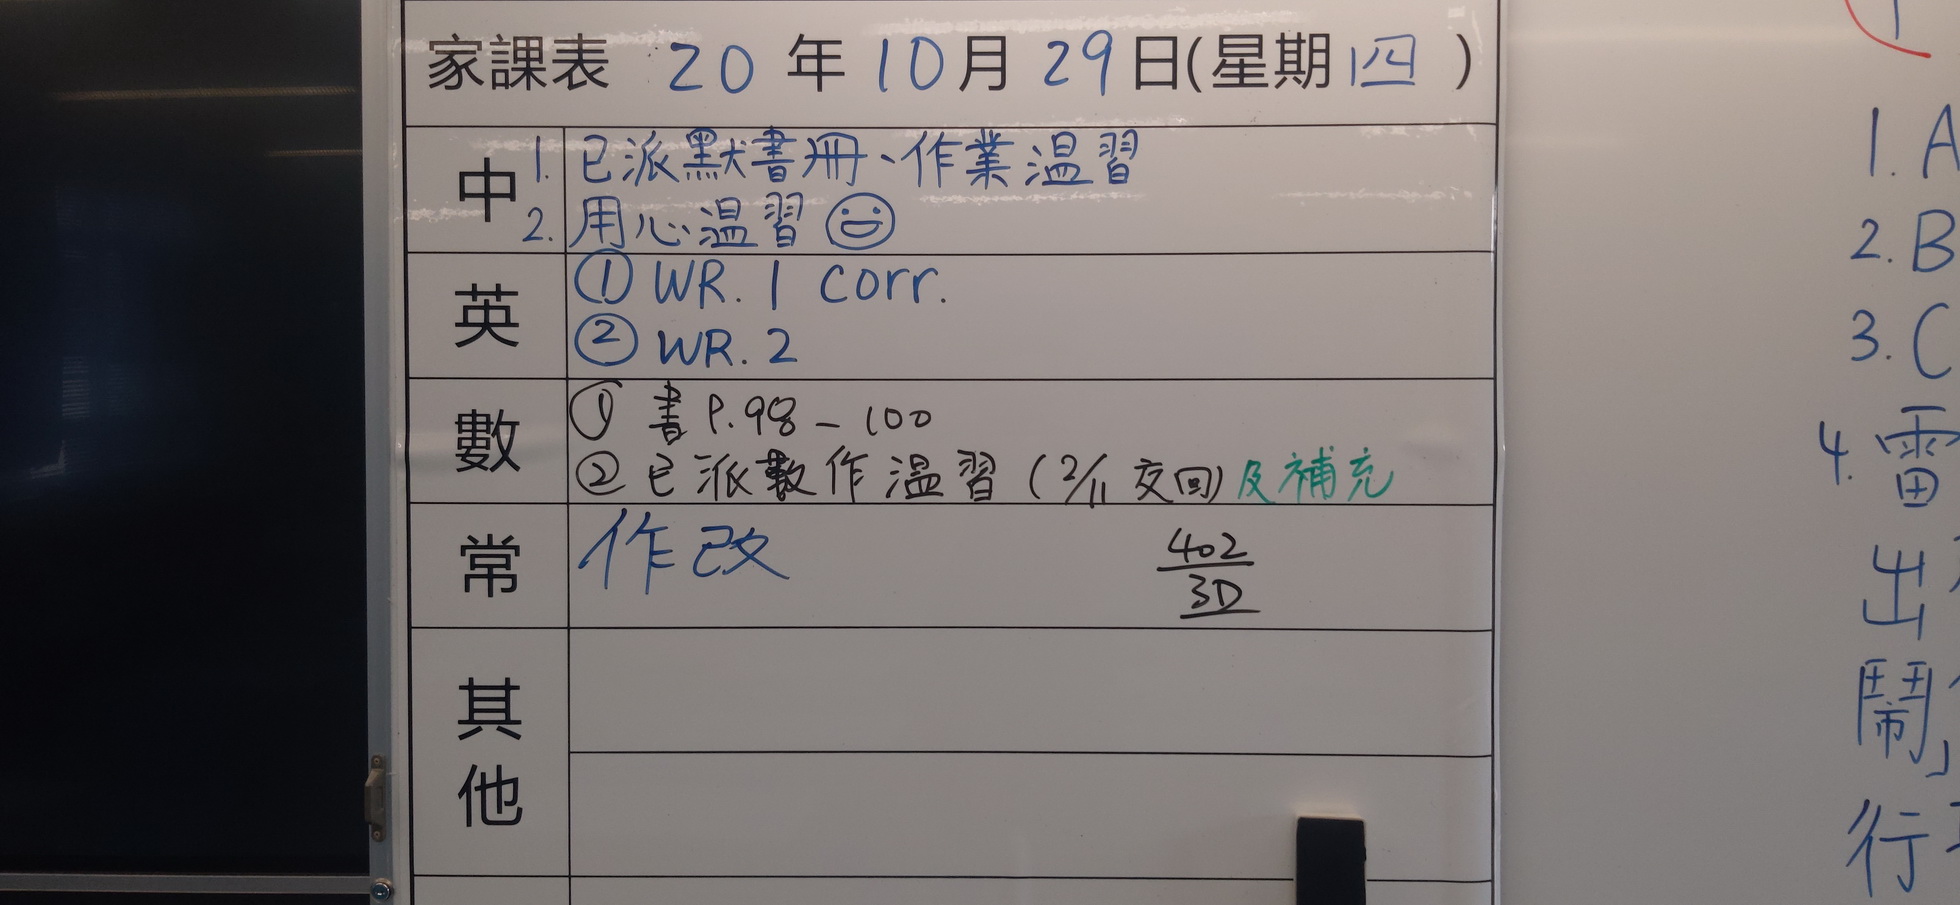 家課表 20 年 10 月 29 日(星期 四 )
中
1. 已派默書冊、作業温習
2. 用心温習
英
① WR. 1 corr.
② WR. 2
數
① 書 P. 98 - 100
② 已派數作温習 (2/11 交回) 及補充
常
作改
402
3D
其他
1. A
2. B
3. C
4. 雷
出
鬧」
行